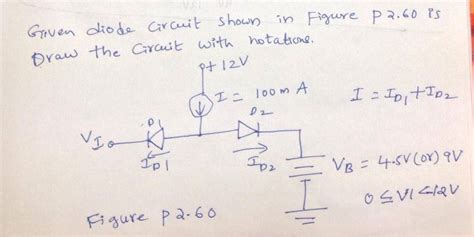 Given diode circuit shown in Figure P2.60 is
Draw the Circuit with notations.
+12V
I = 100 m A
I = ID1 + ID2
D1
D2
VI
ID1
ID2
VB = 4.5V (or) 9V
0 ≤ VI ≤ 12V
Figure P2.60